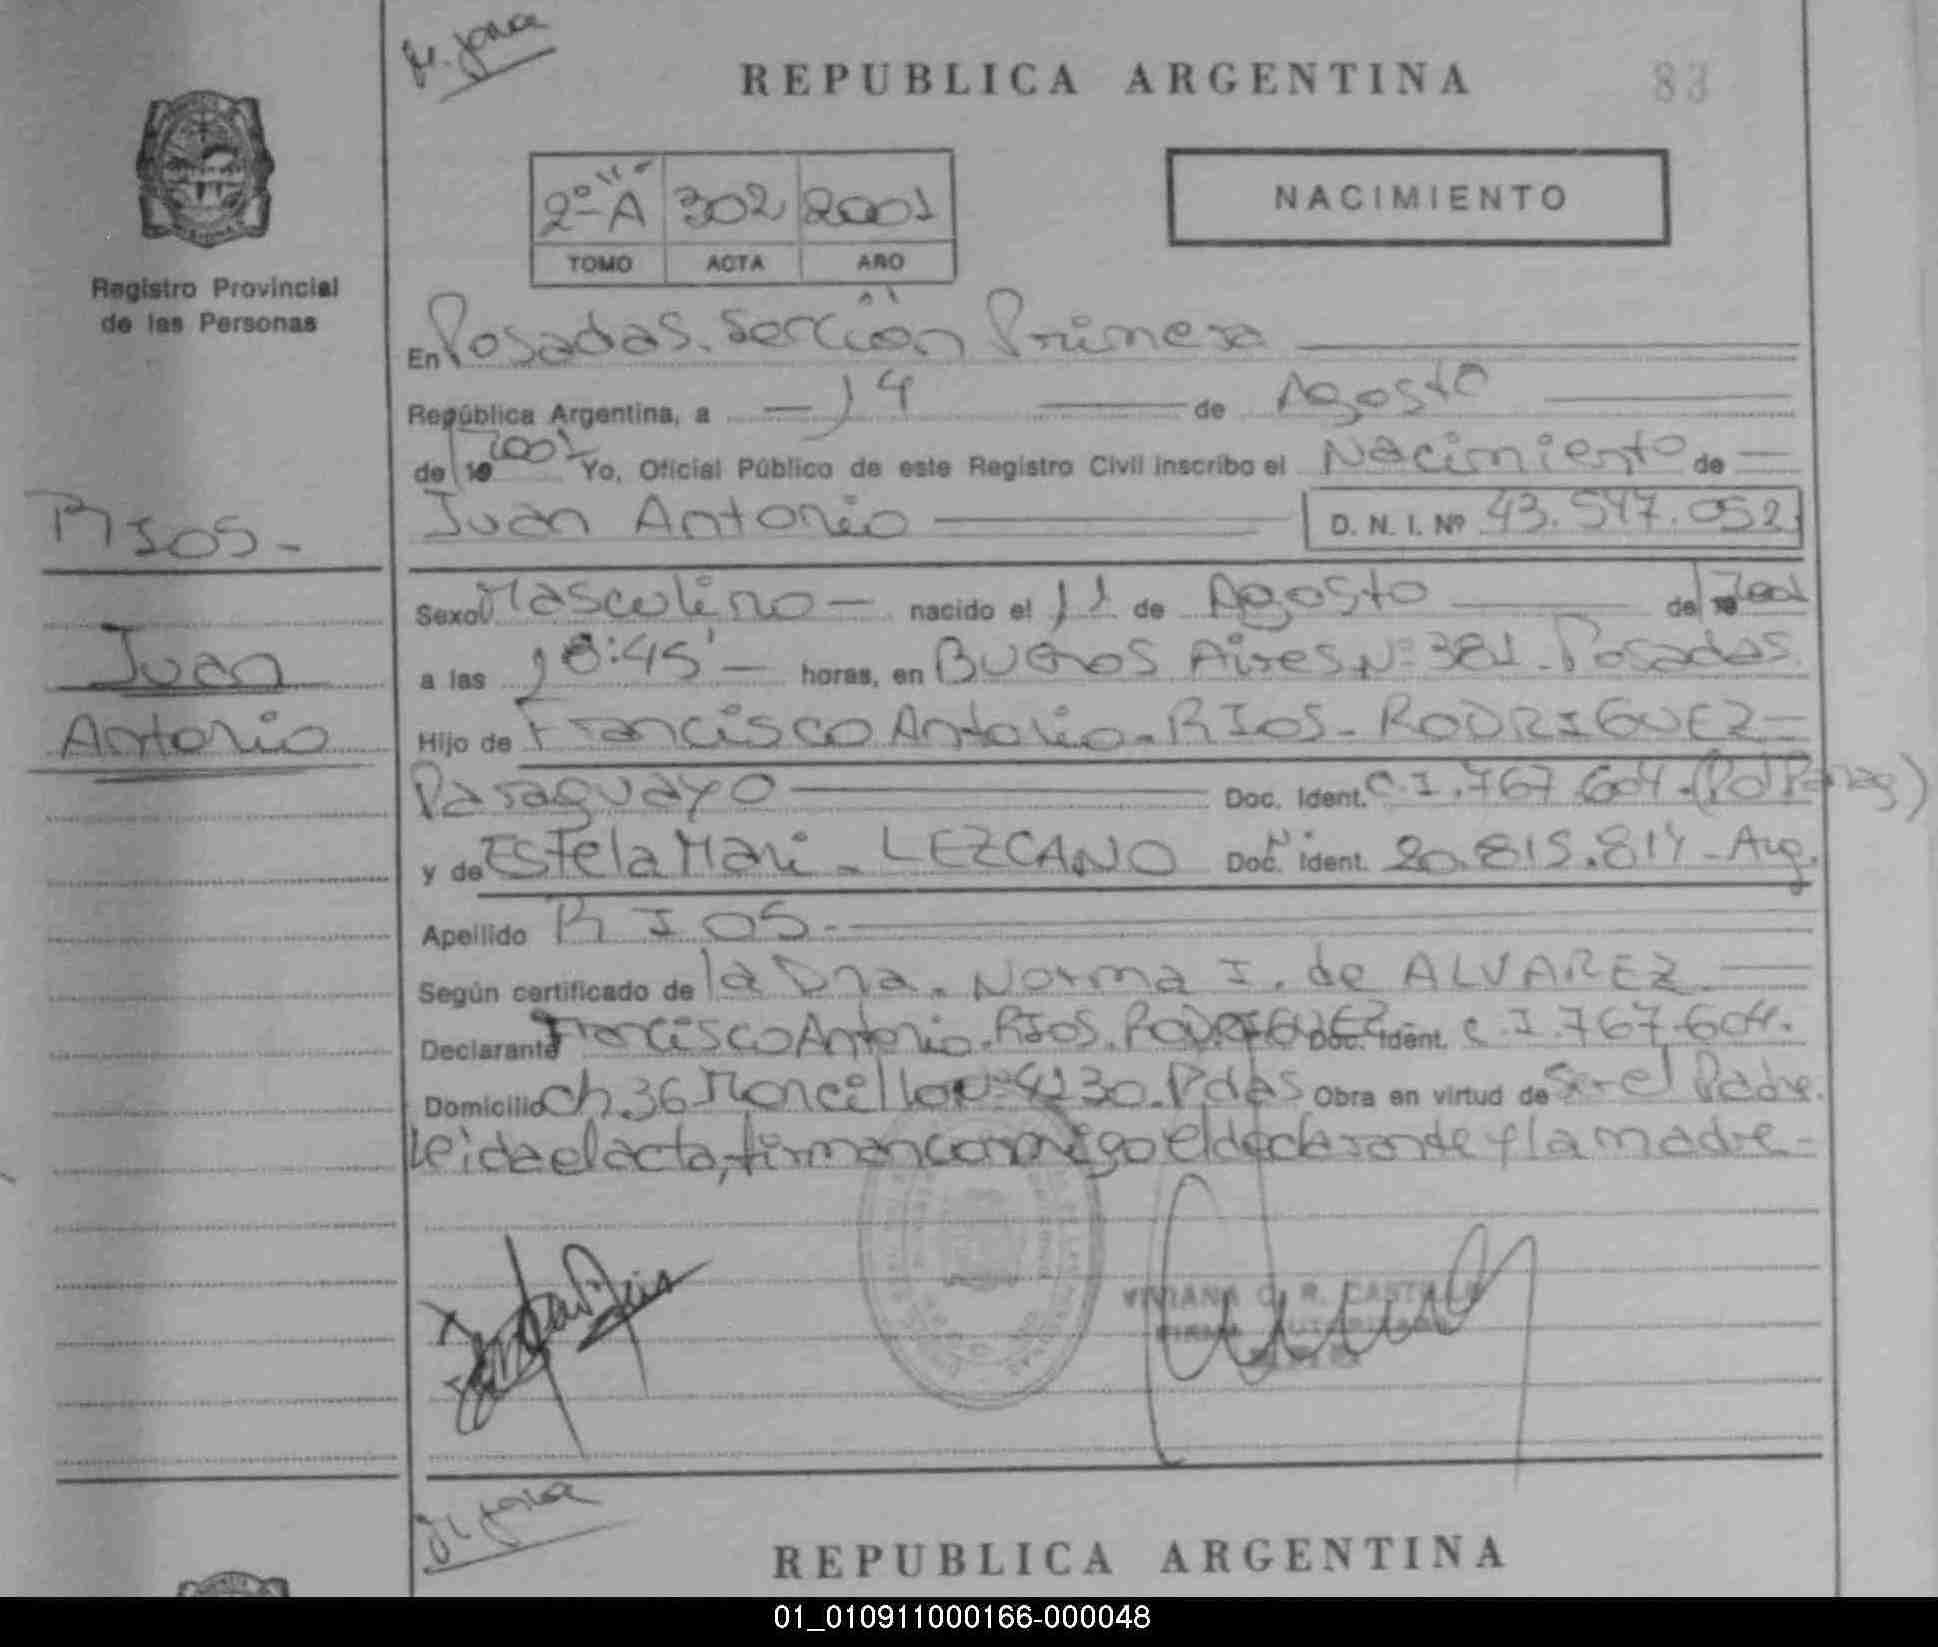 REPUBLICA ARGENTINA
83
2º A 302 2001
TOMO ACTA AÑO
NACIMIENTO
Registro Provincial
de las Personas
En Posadas. Sección Primera
República Argentina, a 14 de Agosto
de 19 2001 Yo, Oficial Público de este Registro Civil inscribo el Nacimiento de
RIOS-
Juan Antonio D. N. I. Nº 43.547.052
Juan
Antonio
Sexo Masculino nacido el 11 de Agosto de 19 2001
a las 18:45' horas, en Buenos Aires Nº 381. Posadas.
Hijo de Francisco Antonio. RIOS. RODRIGUEZ
Paraguayo Doc. Ident. C.I. 767.604.
y de Estela Mari. LEZCANO Doc. Ident. 20.815.814 - Arg.
Apellido RIOS.
Según certificado de la Dra. Norma I. de ALVAREZ.
Declarante Francisco Antonio. RIOS. RODRIGUEZ Doc. Ident. C.I. 767.604.
Domicilio Ch. 36 Nº 4230. Pdas Obra en virtud de Ser el Padre.
Leida el acta, firman conmigo el declarante y la madre-
VIVIANA C. R. CASTILLO
FIRMA AUTORIZADA
REPUBLICA ARGENTINA
01_010911000166-000048